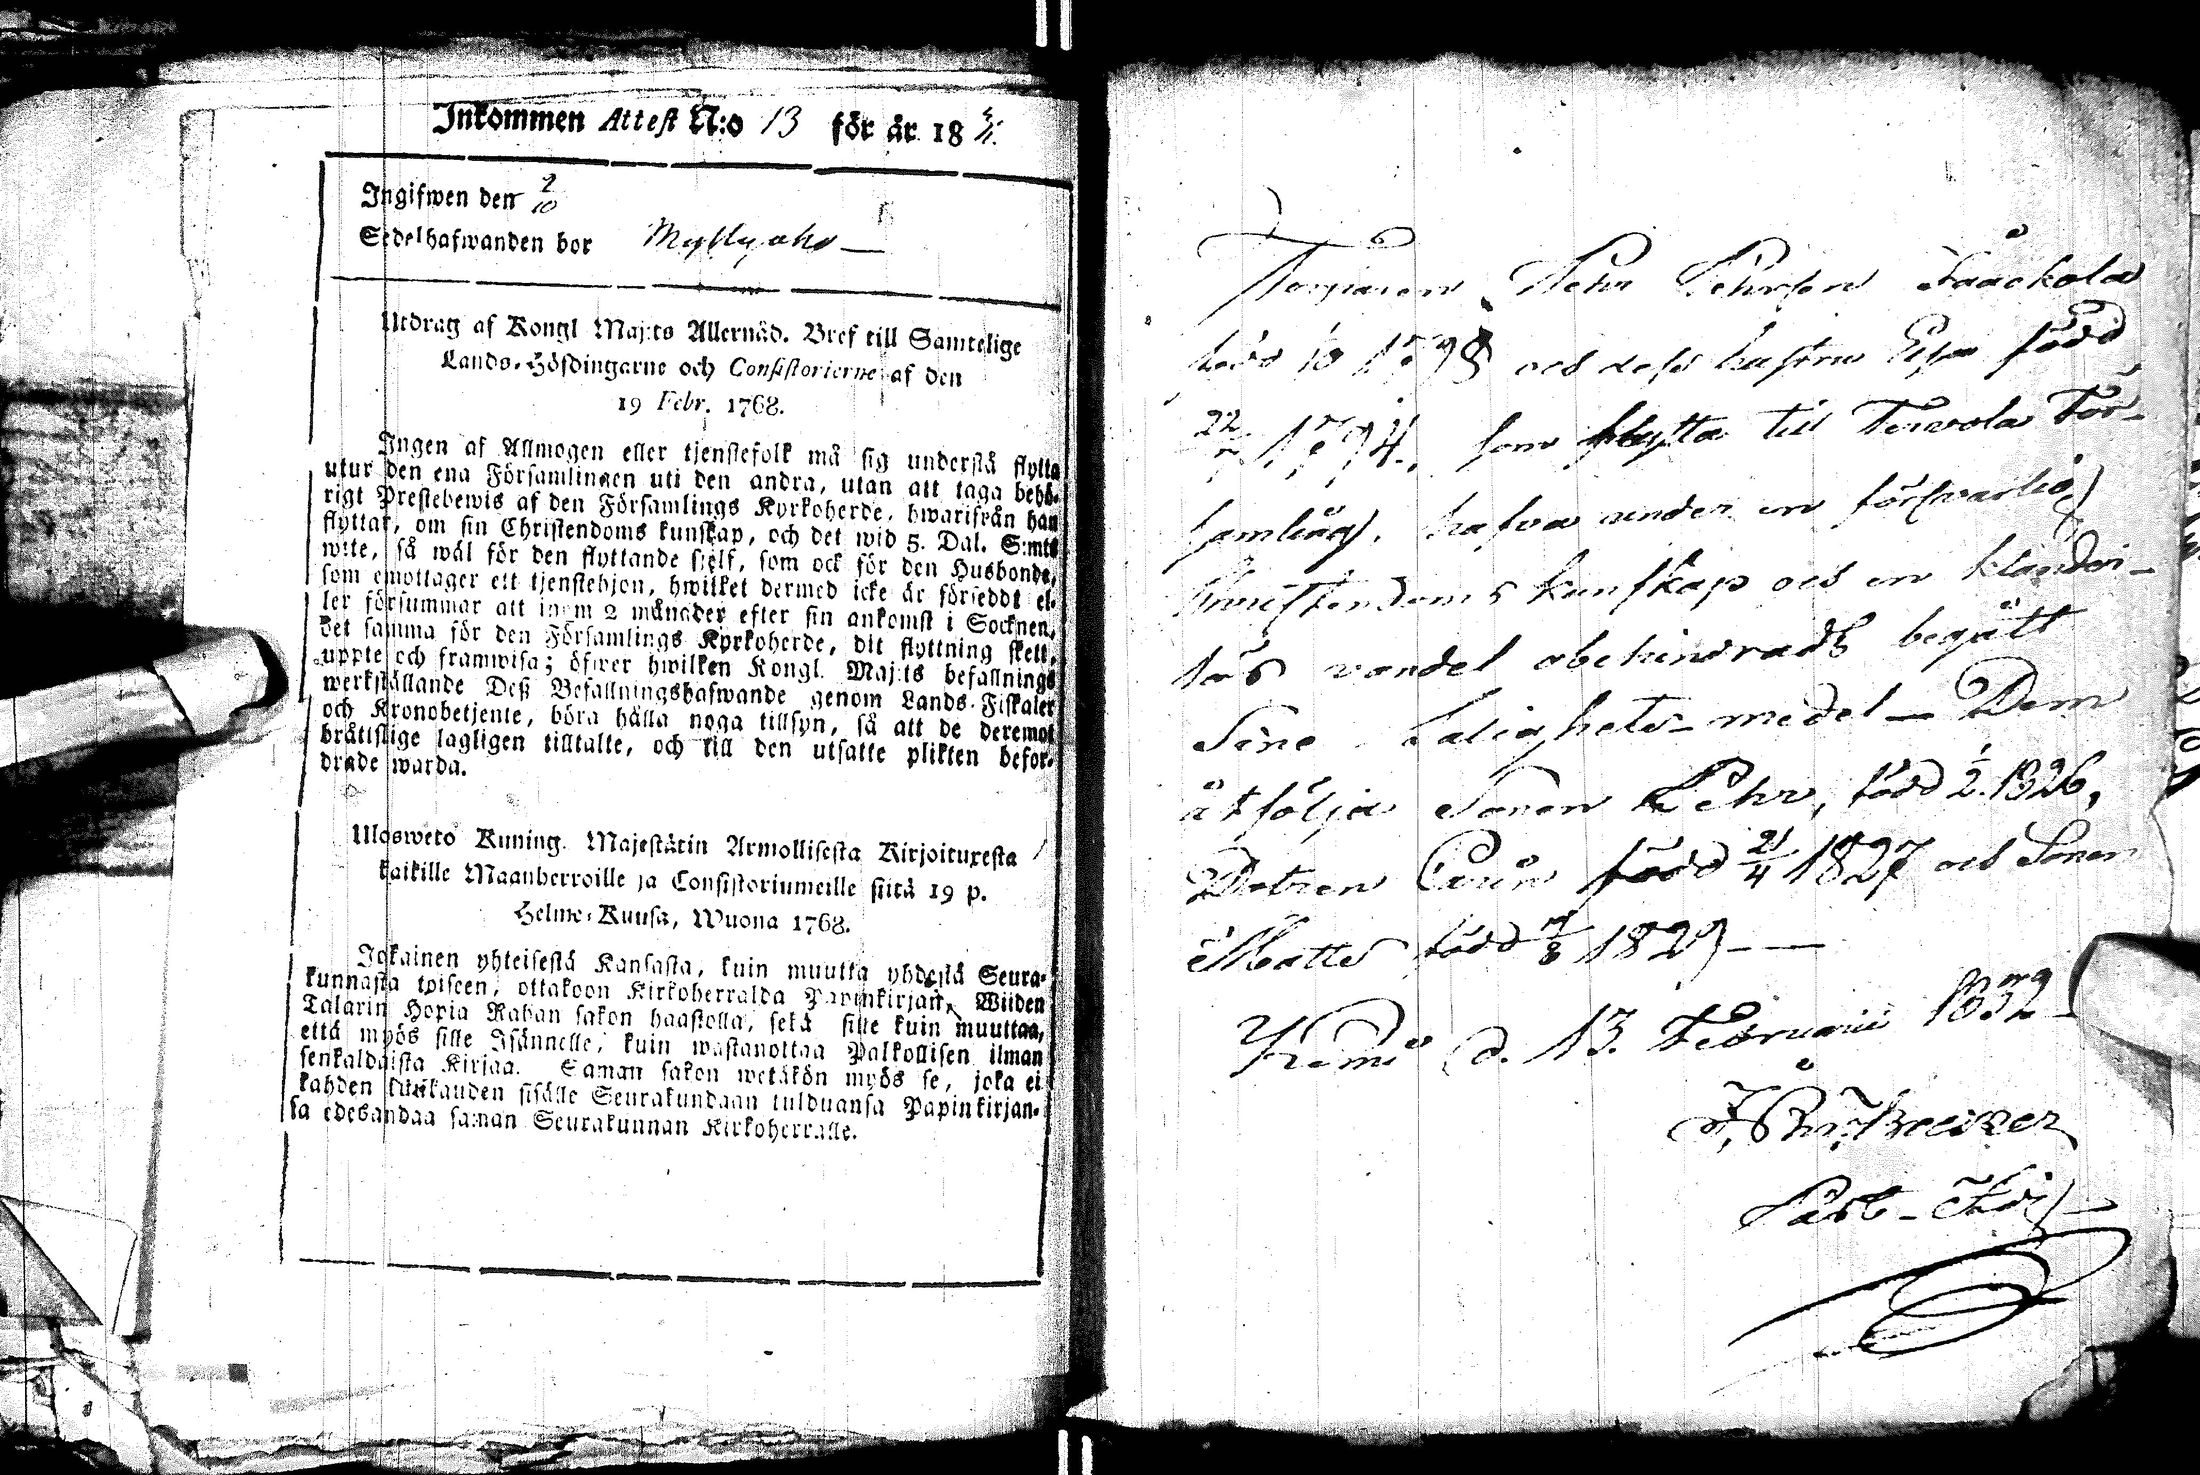 Inkommen Attest N:o 13 för år 18
Ingifwen den 2/10
Sedelhafwanden bor Myllyaho
Utdrag af Kongl Maj:ts Allernåd. Bref till Samtelige
Lands-Höfdingarne och Consistorierne af den
19 Febr. 1768.
Ingen af Allmogen eller tjenstefolk må sig understå flytta
utur den ena Församlingen uti den andra, utan att taga behö-
rigt Prestebewis af den Församlings Kyrkoherde, hwarifrån han
flyttar, om sin Christendoms kunskap, och det wid 5. Dal. S:mts
wite, så wäl för den flyttande sjelf, som ock för den Husbonde,
som emottager ett tjenstehjon, hwilket dermed icke är förseddt el-
ler försummar att inom 2 månader efter sin ankomst i Socknen,
det samma för den Församlings Kyrkoherde, dit flyttning skett,
uppte och framwisa; öfwer hwilken Kongl. Maj:ts befallnings
werkställande Deß Befallningshafwande genom Lands-Fiskaler
och Kronobetjente, böra hålla noga tillsyn, så att de deremot
bråttslige lagligen tilltalte, och till den utsatte plikten befor-
drade warda.
Ulosweto Kuning. Majestätin Armollisesta Kirjoituxesta
kaikille Maanherroille ja Consistoriumeille siitä 19 p.
Helme-Kuusa, Wuona 1768.
Jokainen yhteisestä Kansasta, kuin muutta yhdestä Seura-
kunnasta toiseen, ottakoon Kirkoherralda Papinkirjan, Wiiden
Talarin Hopia Rahan sakon haastolla, sekä sille kuin muuttaa,
että myös sille Isännelle, kuin wastanottaa Palkollisen ilman
senkaldaista Kirjaa. Saman sakon wetäkön myös se, joka ei
kahden kuukauden sisälle Seurakundaan tulduansa Papinkirjan-
sa edesandaa saman Seurakunnan Kirkoherralle.
Torparen Pehr Pehrson Jaackola
född 1798 och dess hustru Elsa född
22/7 1794., som flytta till Terwola För-
samling, hafva under en förswarlig
Christendoms kunskap och en klander-
lös vandel obehindradt begått
Sine Salighets-medel — Dem
åtfölja Sonen Pehr, född 1/2 1826,
Dotren Carin född 21/4 1827 och Sonen
Matts född 7/8 1829 —
Kemi d. 13. Februarii 1832